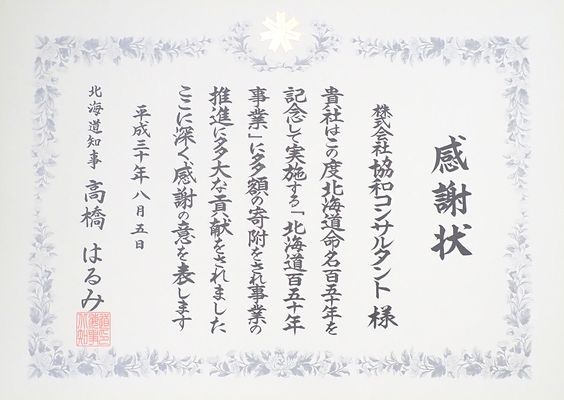 感謝状
株式会社 協和コンサルタント 様
貴社はこの度北海道命名百五十年を
記念して実施する「北海道百五十年
事業」に多額の寄附をされ事業の
推進に多大な貢献をされました
ここに深く感謝の意を表します
平成三十年八月五日
北海道知事 高橋 はるみ